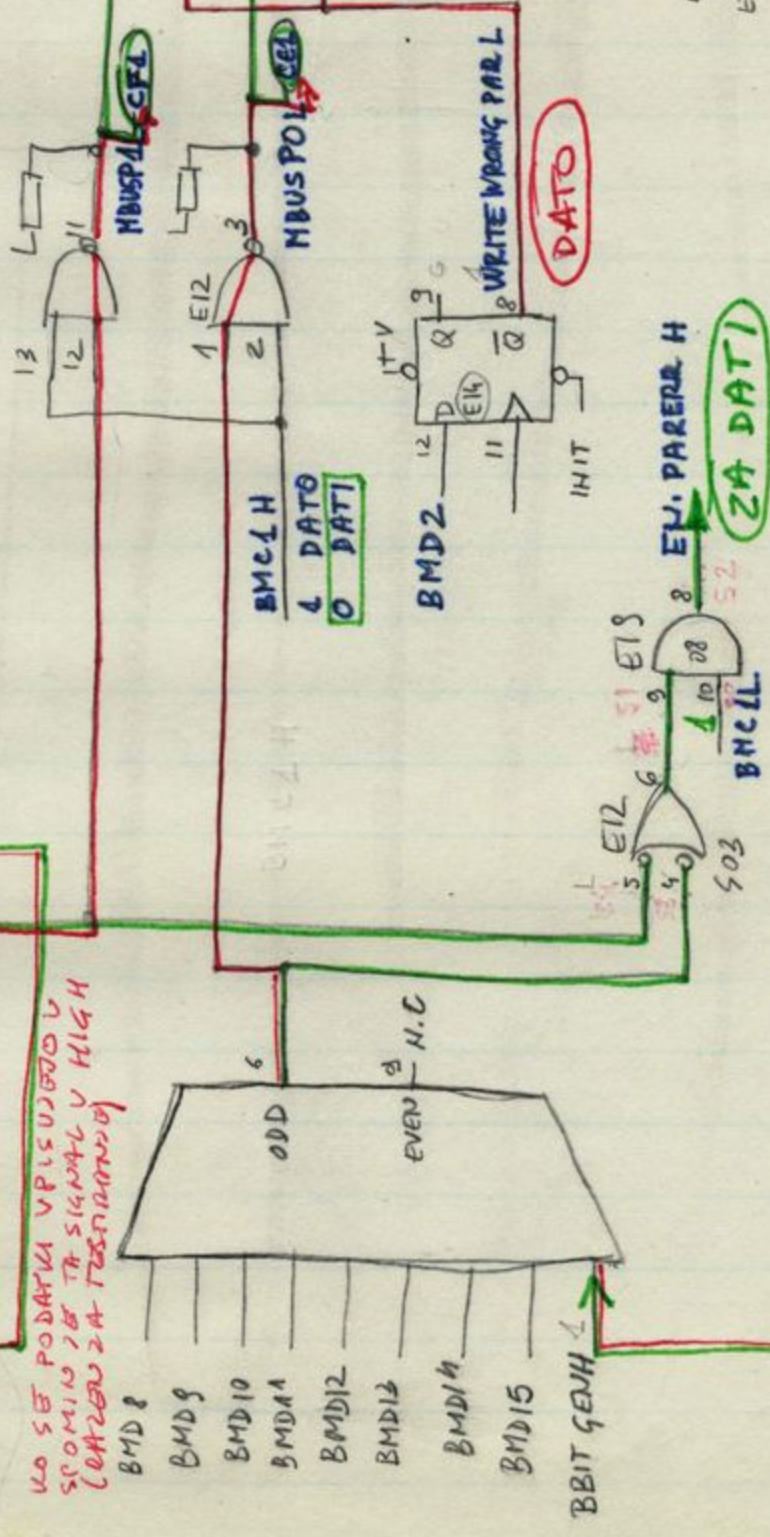 KO SE PODATKI VPISUJEJO V
SPOMIN JE TA SIGNAL V HIGH
BMD 8
BMD9
BMD10
BMD11
BMD12
BMD13
BMD14
BMD15
BBIT GENH 1
ODD
6
EVEN
9
N.C
13
12
11
MBUSP1L
CF1
E12
1
2
3
MBUSP0L
CE1
BMC1H
1 DATO
0 DATI
BMD2
12
D
11
E14
+V
Q
9
Q
8
INIT
WRITE WRONG PAR L
DATO
E12
5
4
6
S03
E19
9
10
08
8
1
BMC1L
S1
S2
EN. PARERR H
ZA DATI